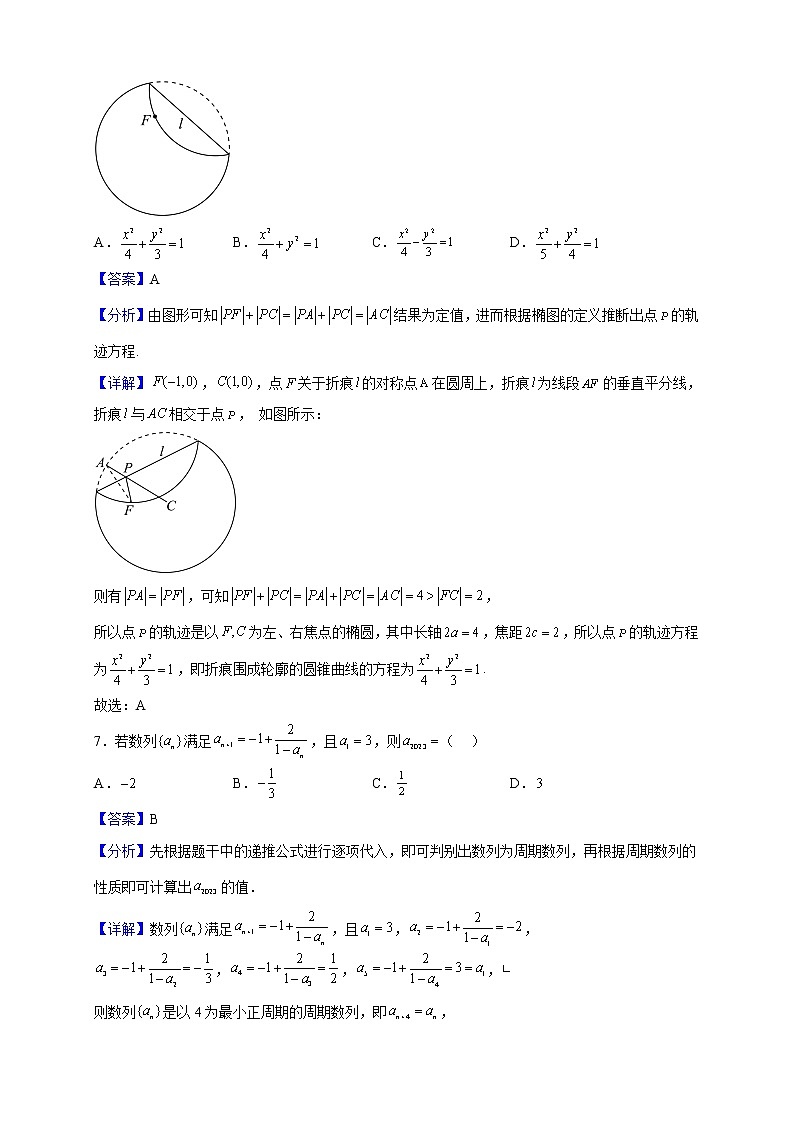 F l
A. x²/4 + y²/3 = 1 B. x²/4 + y² = 1 C. x²/4 − y²/3 = 1 D. x²/5 + y²/4 = 1
【答案】A
【分析】由图形可知|PF|+|PC|=|PA|+|PC|=|AC|结果为定值，进而根据椭图的定义推断出点 P 的轨
迹方程.
【详解】F(−1,0)，C(1,0)，点 F 关于折痕 l 的对称点 A 在圆周上，折痕 l 为线段 AF 的垂直平分线，
折痕 l 与 AC 相交于点 P， 如图所示：
A P l
F C
则有|PA|=|PF|，可知|PF|+|PC|=|PA|+|PC|=|AC|=4>|FC|=2，
所以点 P 的轨迹是以 F,C 为左、右焦点的椭圆,其中长轴 2a=4，焦距 2c=2，所以点 P 的轨迹方程
为 x²/4 + y²/3 = 1，即折痕围成轮廓的圆锥曲线的方程为 x²/4 + y²/3 = 1.
故选：A
7．若数列{aₙ}满足 aₙ₊₁ = −1 + 2/(1−aₙ)，且 a₁ = 3，则 a₂₀₂₃ =（ ）
A. −2 B. −1/3 C. 1/2 D. 3
【答案】B
【分析】先根据题干中的递推公式进行逐项代入，即可判别出数列为周期数列，再根据周期数列的
性质即可计算出 a₂₀₂₃ 的值.
【详解】数列{aₙ}满足 aₙ₊₁ = −1 + 2/(1−aₙ)，且 a₁ = 3，a₂ = −1 + 2/(1−a₁) = −2，
a₃ = −1 + 2/(1−a₂) = −1/3，a₄ = −1 + 2/(1−a₃) = 1/2，a₅ = −1 + 2/(1−a₄) = 3 = a₁，∟
则数列{aₙ}是以 4 为最小正周期的周期数列，即 aₙ₊₄ = aₙ，